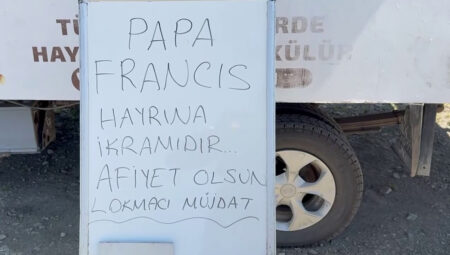 TÜ
RDE
HAY
KÜLÜR
PAPA
FRANCIS
HAYRINA
İKRAMIDIR...
AFİYET OLSUN
LOKMACI MÜJDAT